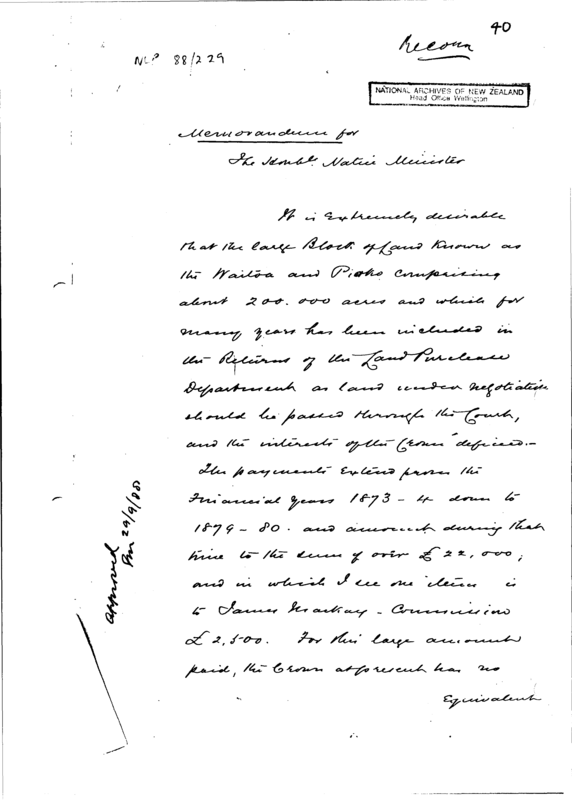 40
Recom
NLP 88/229
NATIONAL ARCHIVES OF NEW ZEALAND
Head Office Wellington
Memorandum for
The Honble. Native Minister
It is Extremely desirable
that the large Block of Land Known as
the Waitoa and Piako comprising
about 200.000 acres and which for
many years has been included in
the Returns of the Land Purchase
Department as land under negotiation
should be passed through the Court,
and the interests of the Crown defined.-
The payments Extend from the
Financial years 1873-4 down to
1879-80. and amount during that
time to the sum of over £22,000;
and in which I see one item is
to James Mackay - Commission
£2,500. For this large amount
paid, the Crown at present has no
Equivalent
approved
29/9/88